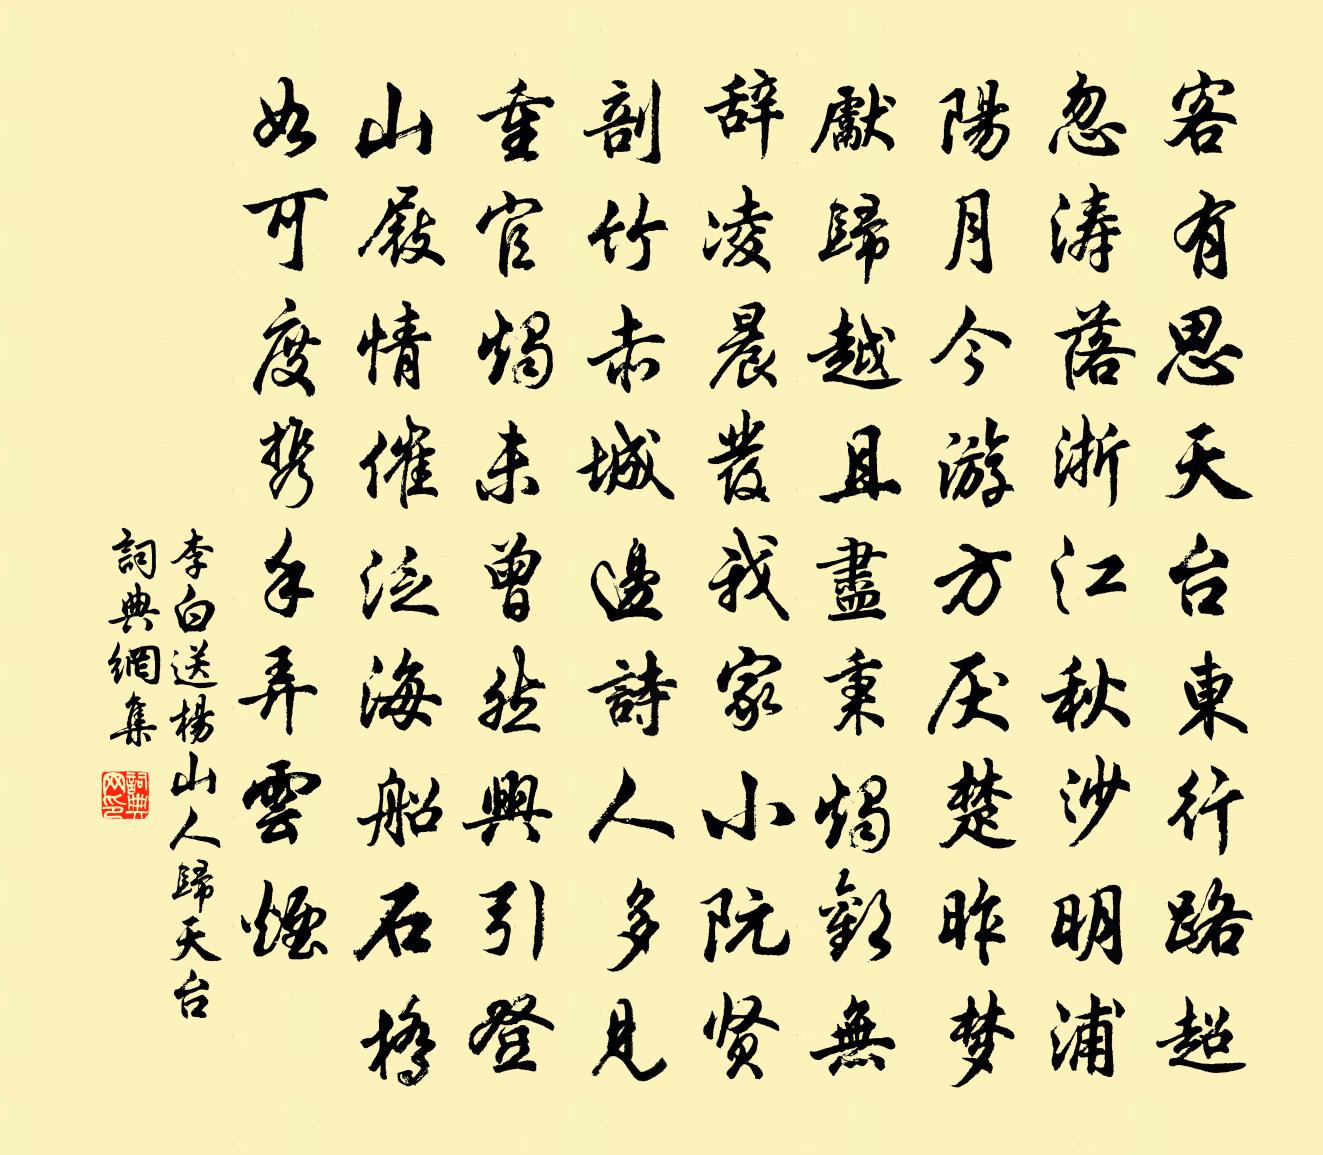 客有思天台東行路超
忽涛落浙江秋沙明浦
陽月今游方厌楚昨梦
獻歸越且盡秉燭歡無
辞凌晨發我家小阮贤
剖竹赤城邊詩人多見
重官燭未曾然興引登
山屐情催泛海船石橋
如可度携手弄雲煙
李白送楊山人歸天台
詞典網集
詞典网印